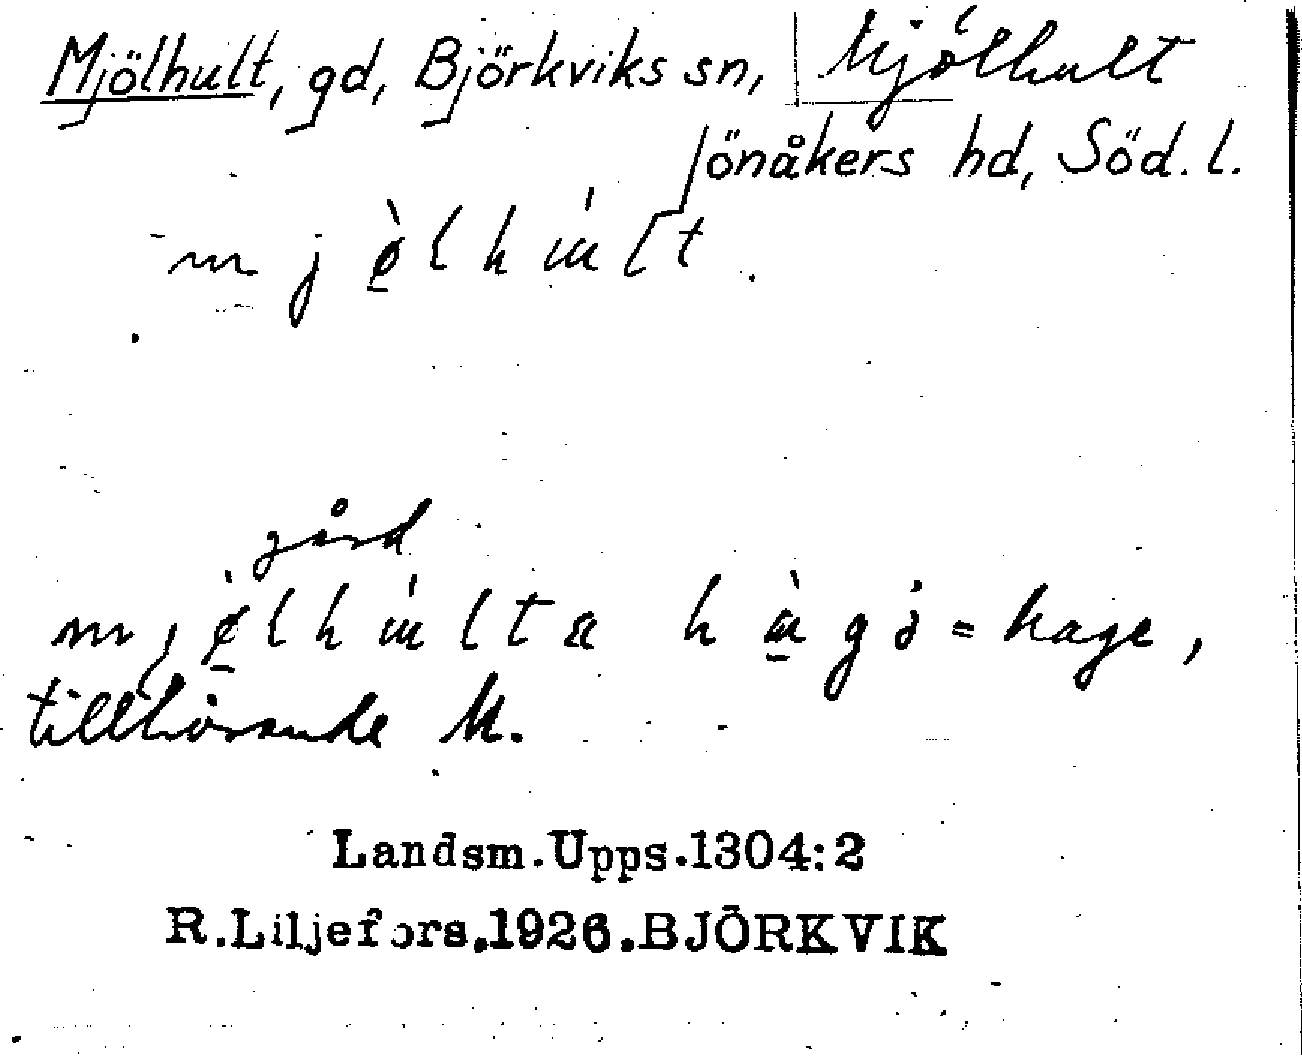 Mjölhult, gd, Björkviks sn, Mjölhult
Jönåkers hd, Söd. l.
gård
hage,
tillhörande M.
Landsm.Upps.1304:2
R.Liljefors.1926.BJÖRKVIK